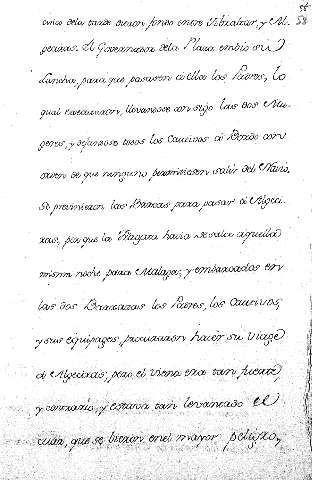 58
58
cinco de la tarde dieron fondo entre Gibraltar, y Al-
gecíras. El Governador dela Plaza embio su
Lancha, para que pasasen á ellas los Padres, lo
qual executaron, llevandose con sigo las dos Mu-
geres, y dejandose todos los Cautivos á Bordo con
orden de que ninguno permitiesen salir del Navio.
Se previnieron las Barcas para pasar á Algeci-
ras, porque la Fragata havia de salir aquella
misma noche para Malaga; y embarcados en
las dos Barcazas los Padres, los Cautivos,
y sus equipages, procuraron hacér su viage
á Algeciras; pero el viento era tan fuerte,
y contrario, y estava tan levantado el
mar, que se vieron en el mayor peligro,